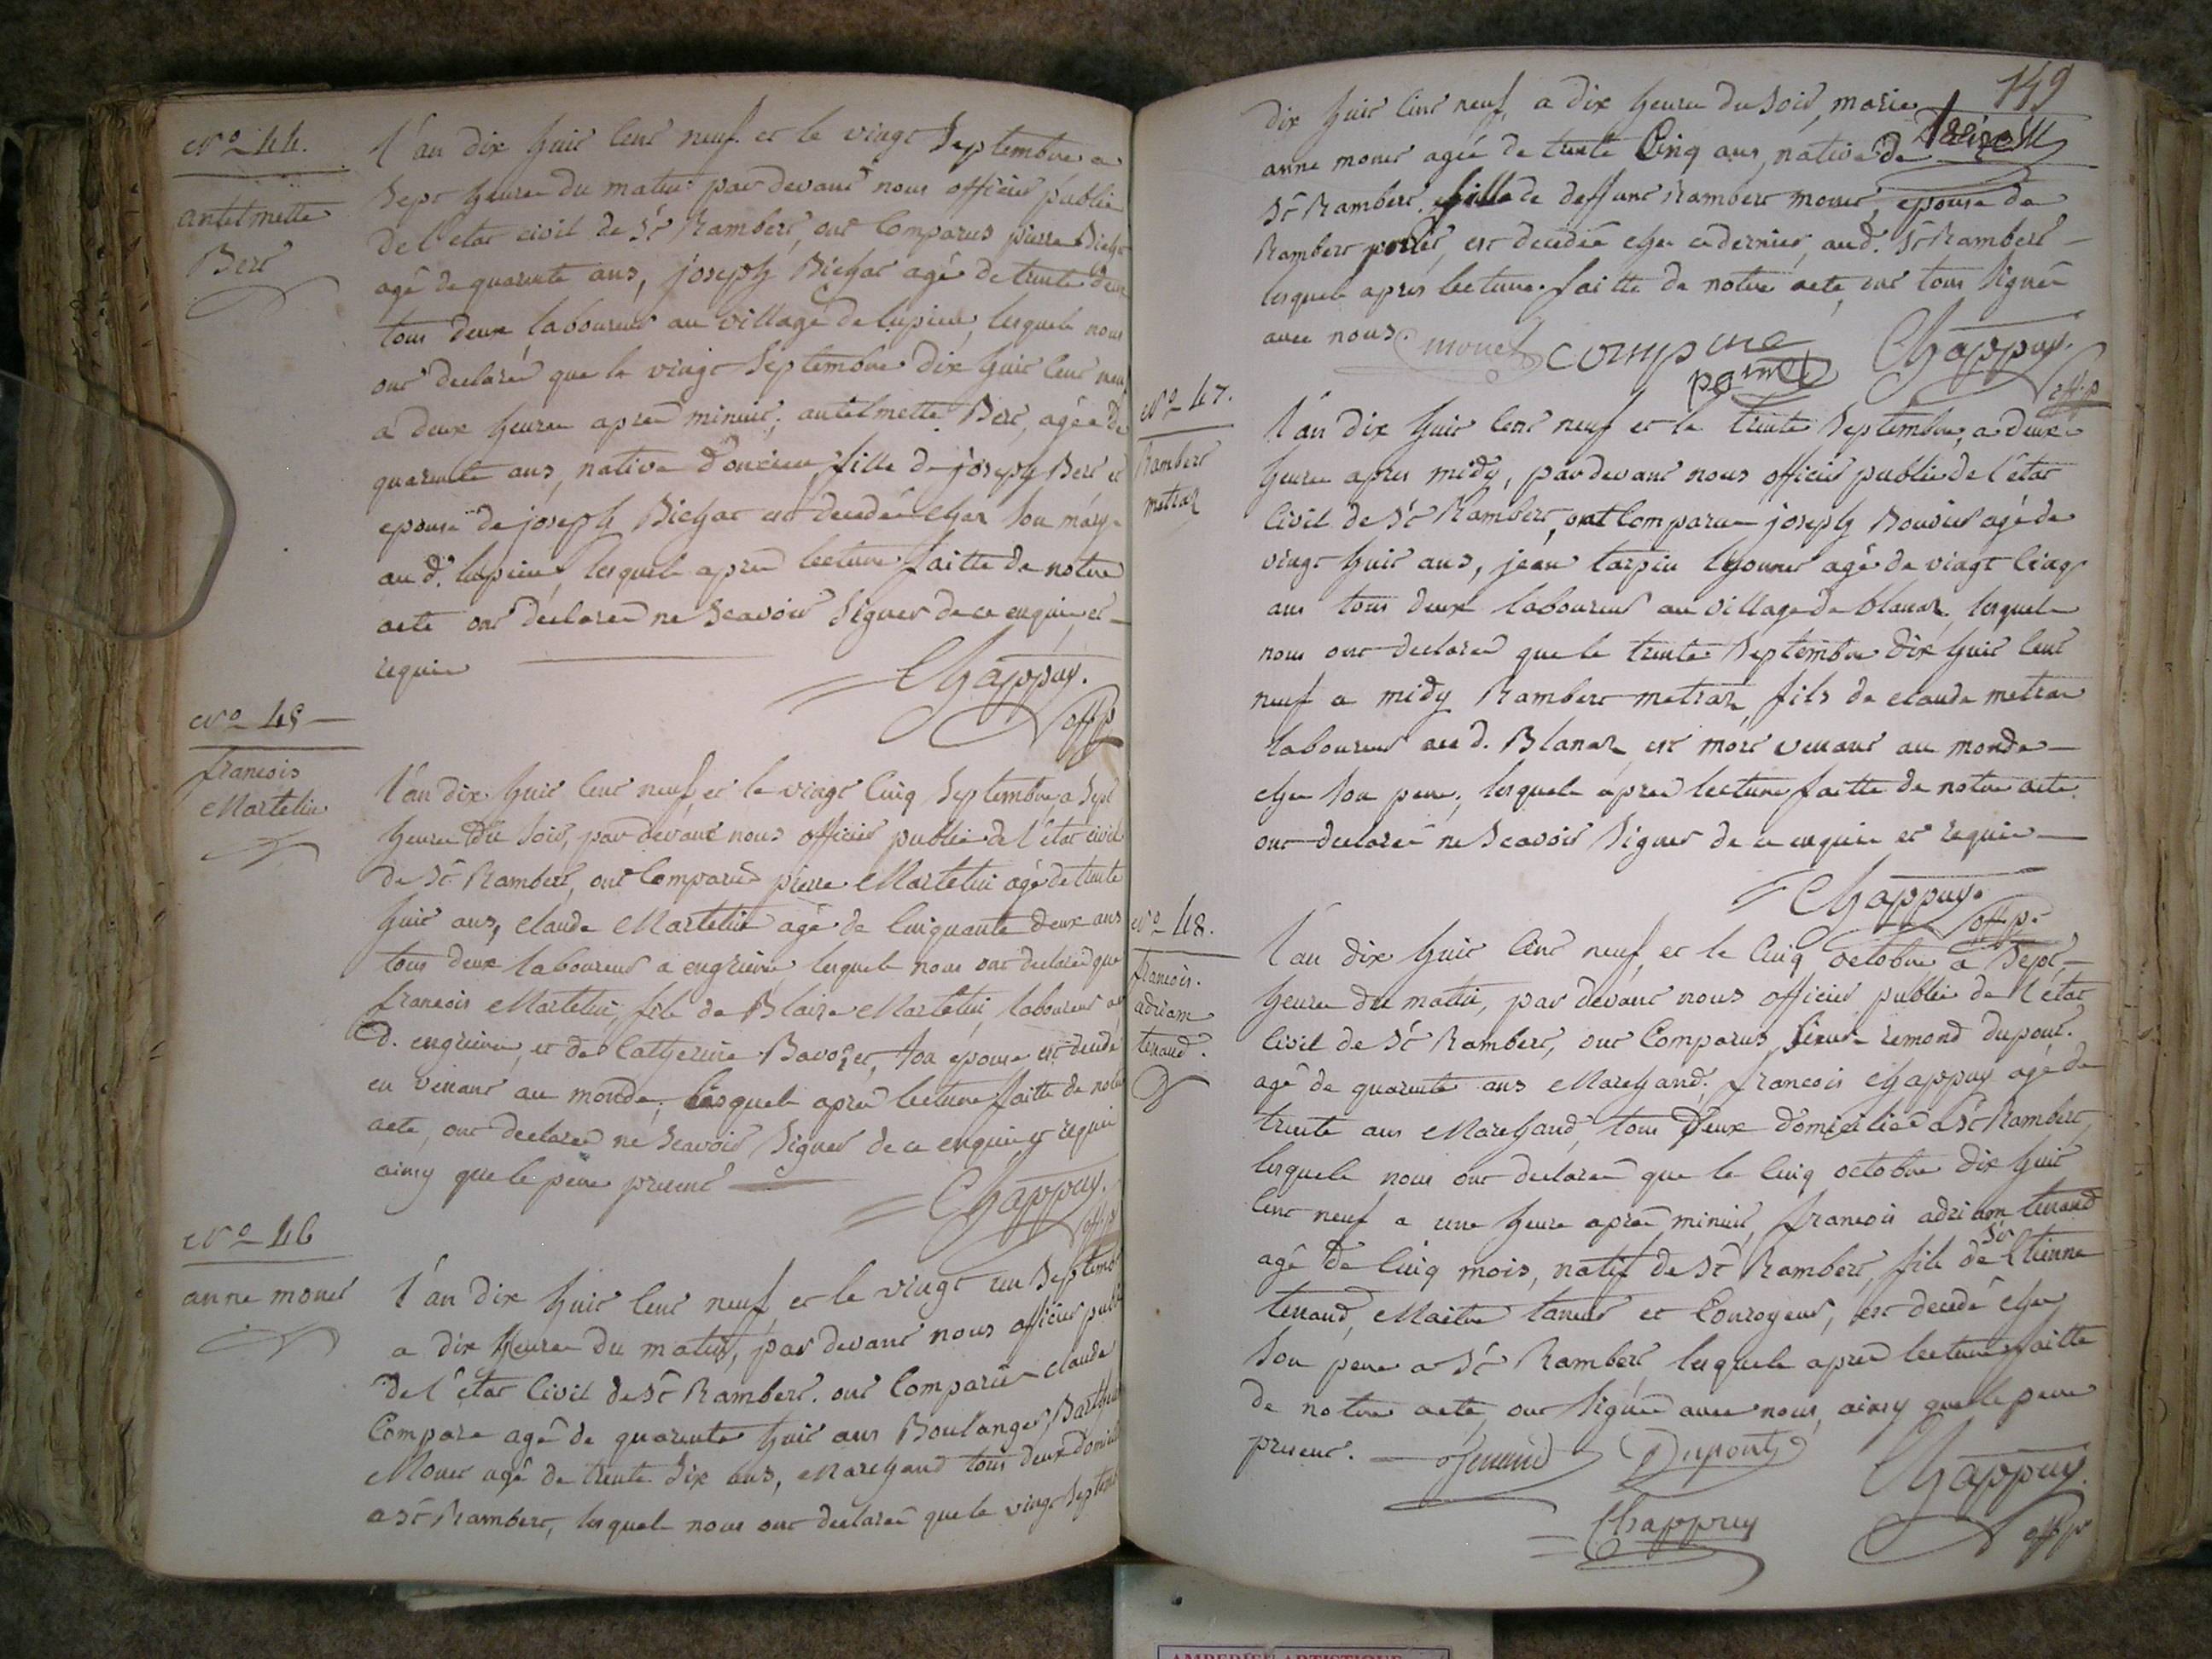 N.o 44.
antelmette
Bert
L'an dix huit cent neuf et le vingt Septembre a
Sept heures du matin par devant nous officier public
de l'etat civil de St Rambert, ont Comparus pierre Bichat
agé de quarente ans, joseph Bichat agé de trente deux
tous deux laboureurs au village de lupieu, lesquels nous
ont declaré que le vingt Septembre dix huit cent neuf
a deux heures apres minuit, antelmette Bert, agée de
quarente ans, native d'oncieu, fille de joseph Bert et
epouse de joseph Bichat est decedée chez Son mary
au d. lupieu, lesquels apres lecture faitte de notre
acte ont declarés ne Scavoir Signer de ce enquis et
requis
Chappuy.
off. p
N.o 45
francois
Martelin
L'an dix huit cent neuf et le vingt Cinq Septembre, a Sept
heures du Soir, par devant nous officier public de l'etat civil
de St Rambert, ont Comparus pierre Martelin agé de trente
huit ans, Claude Martelin agé de Cinquante deux ans
tous deux laboureurs a engrieve, lesquels nous ont declaré que
francois Martelin, fils de Blaize Martelin, laboureur au
d. engrieve, et de Catherine Bavozet, Son epouse est decedé
en venant au monde, lesquels apres lecture faitte de notre
acte, ont declarés ne Scavoir Signer de ce enquis et requis
ainsy que le pere present
Chappuy.
off. p
N.o 46
anne monet
L'an dix huit cent neuf, et le vingt un Septembre
a dix heures du matin, par devant nous officier public
de l'etat Civil de St Rambert. ont Comparus claude
Compare agé de quarente huit ans Boulanger,
Monet agé de trente Six ans, Marchand tous deux domiciliés
a St Rambert, lesquels nous ont declaré que le vingt Septembre
149
dix huit cent neuf, a dix heures du Soir, marie
anne monet agée de trente Cinq ans, native de
St Rambert, fille de deffunt Rambert monet, epouse de
Rambert est decedée chez ce dernier, aud. St Rambert
lesquels apres lecture faitte de notre acte, ont tous Signés
avec nous.
monet compare Chappuy.
off. p
N.o 47.
Rambert
metraz
L'an dix huit cent neuf et le trente Septembre, a deux
heures apres midy, par devant nous officier public de l'etat
Civil de St Rambert, ont Comparus joseph Bouvier agé de
vingt huit ans, jean tarpin lyonnet agé de vingt Cinq
ans tous deux laboureurs au village de blanaz, lesquels
nous ont declaré que le trente Septembre dix huit cent
neuf a midy Rambert metraz, fils de claude metraz
laboureur aud. Blanaz est mort venant au monde
chez Son pere, lesquels apres lecture faitte de notre acte
ont declarés ne Scavoir Signer de ce enquis et requis
Chappuy.
off. p.
N.o 48.
francois.
adriam
tenand.
L'an dix huit cent neuf, et le Cinq octobre a Sept
heures du matin, par devant nous officier public de l'etat
Civil de St Rambert, ont Comparus Sieur remond dupont.
agé de quarente ans Marchand, francois Chappuy agé de
trente ans Marchand, tous Deux domiciliés a St Rambert,
lesquels nous ont declaré que le Cinq octobre dix huit
Cent neuf a une heure apres minuit, francois adriam tenand
agé de Cinq mois, natif de St Rambert, fils de Sr Etienne
tenand, Maitre taneur et Couroyeur, est decedé chez
Son pere a St Rambert, lesquels apres lecture faitte
de notre acte, ont Signés avec nous, ainsy que le pere
present. Tenand Dupont Chappuy.
Chappuy off. p